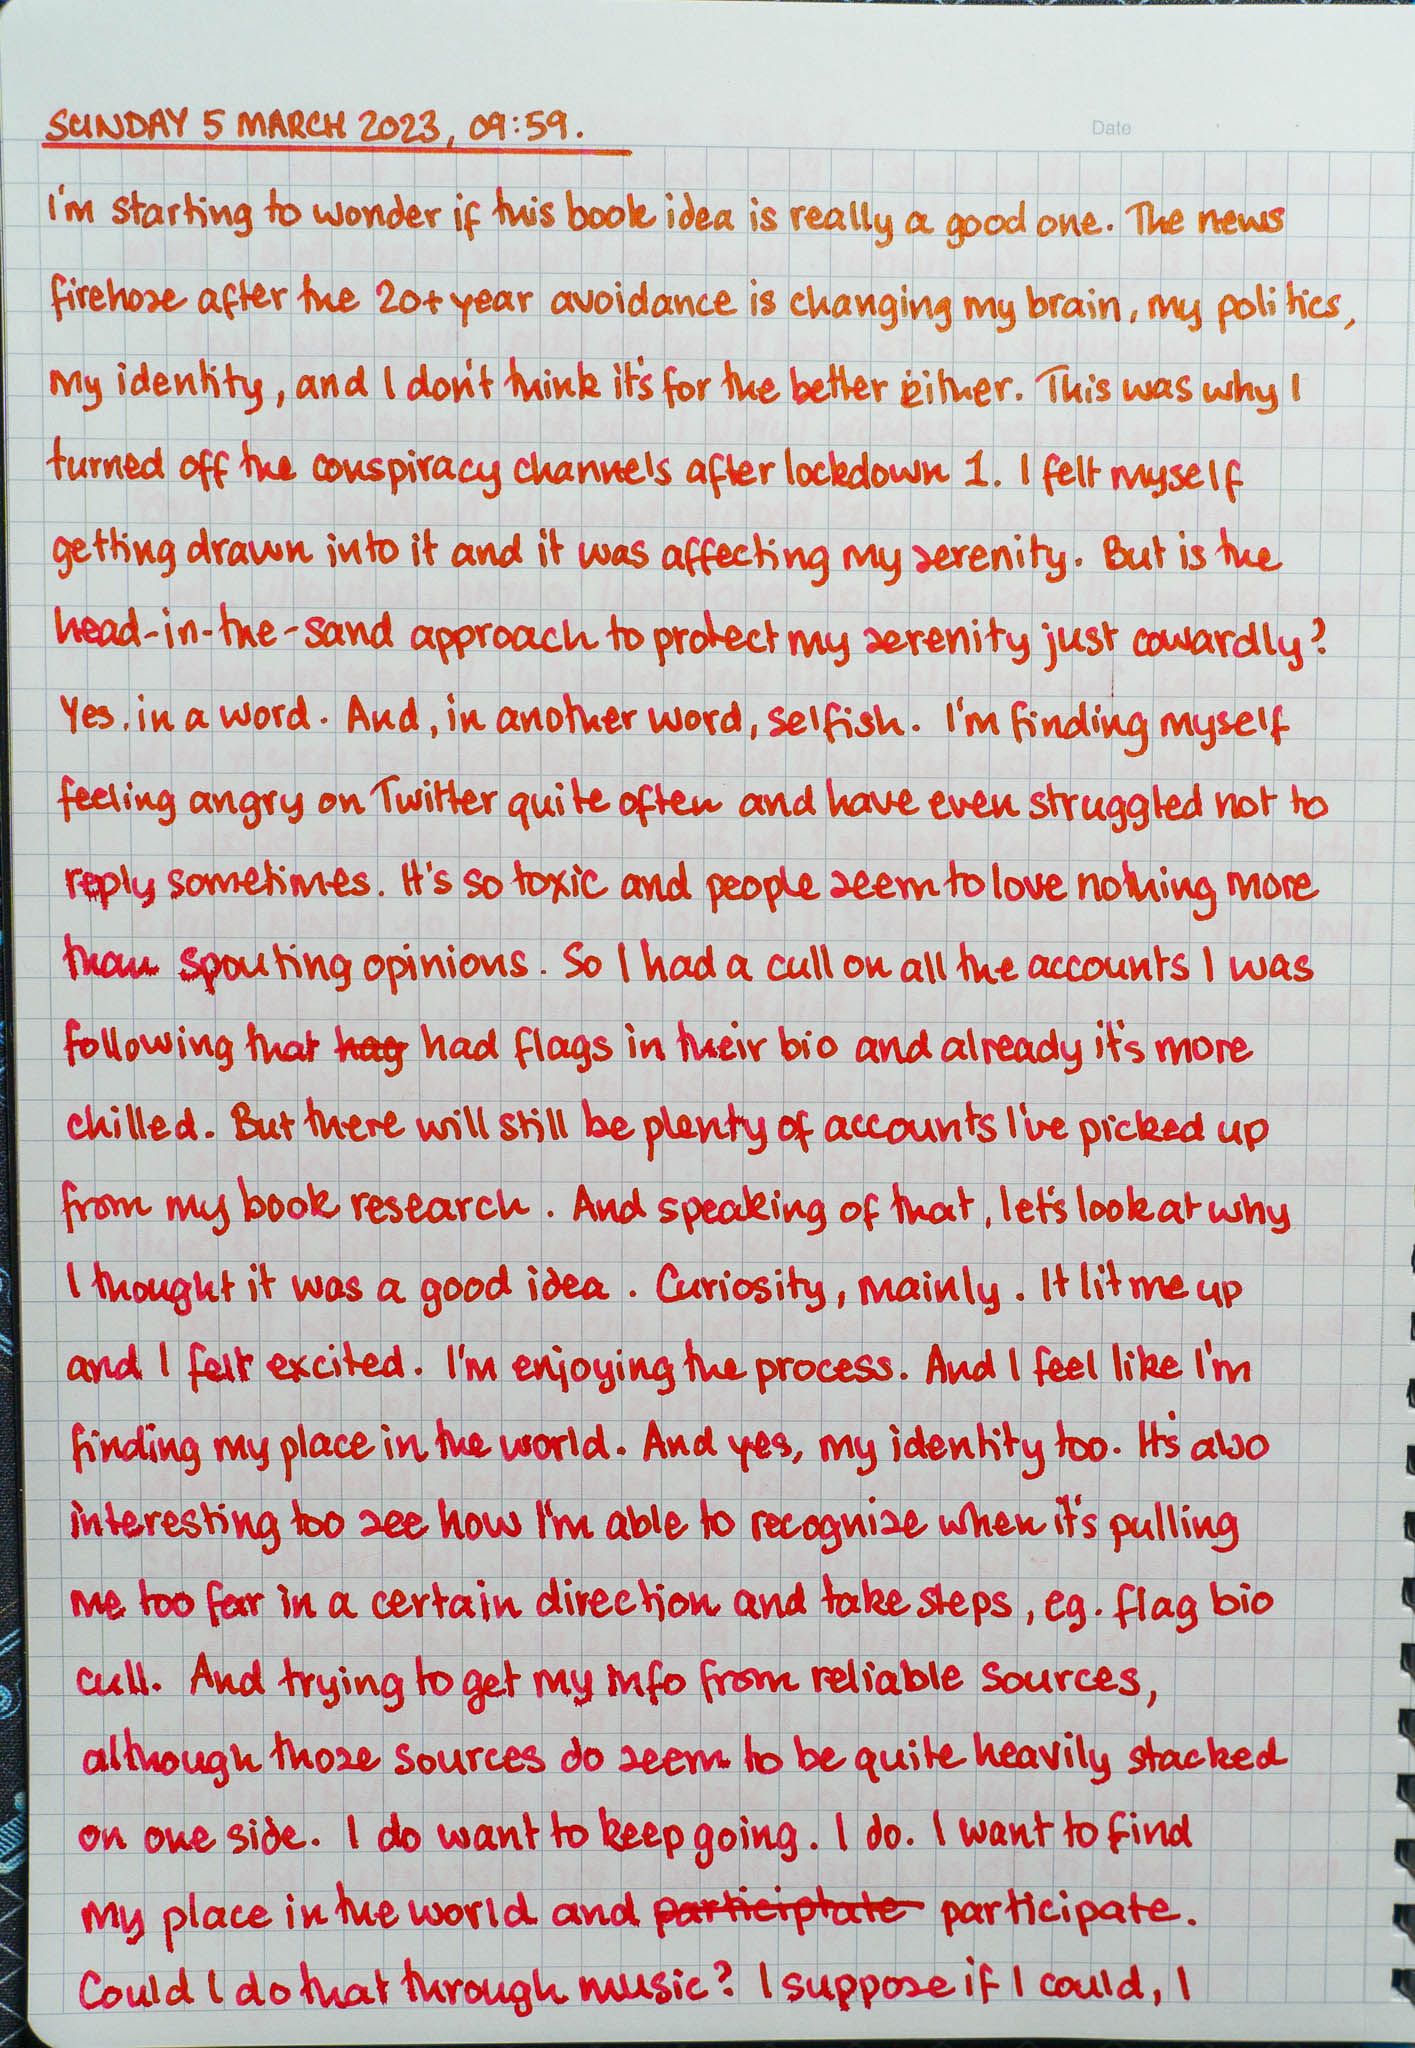 SUNDAY 5 MARCH 2023, 09:59.
Date
I'm starting to wonder if this book idea is really a good one. The news
firehose after the 20+ year avoidance is changing my brain, my politics,
my identity, and I don't think it's for the better either. This was why I
turned off the conspiracy channels after lockdown 1. I felt myself
getting drawn into it and it was affecting my serenity. But is the
head-in-the-sand approach to protect my serenity just cowardly?
Yes, in a word. And, in another word, selfish. I'm finding myself
feeling angry on Twitter quite often and have even struggled not to
reply sometimes. It's so toxic and people seem to love nothing more
than spouting opinions. So I had a cull on all the accounts I was
following that hag had flags in their bio and already it's more
chilled. But there will still be plenty of accounts I've picked up
from my book research. And speaking of that, let's look at why
I thought it was a good idea. Curiosity, mainly. It lit me up
and I felt excited. I'm enjoying the process. And I feel like I'm
finding my place in the world. And yes, my identity too. It's also
interesting too see how I'm able to recognise when it's pulling
me too far in a certain direction and take steps, eg. flag bio
cull. And trying to get my info from reliable sources,
although those sources do seem to be quite heavily stacked
on one side. I do want to keep going. I do. I want to find
my place in the world and participtate participate.
Could I do that through music? I suppose if I could, I